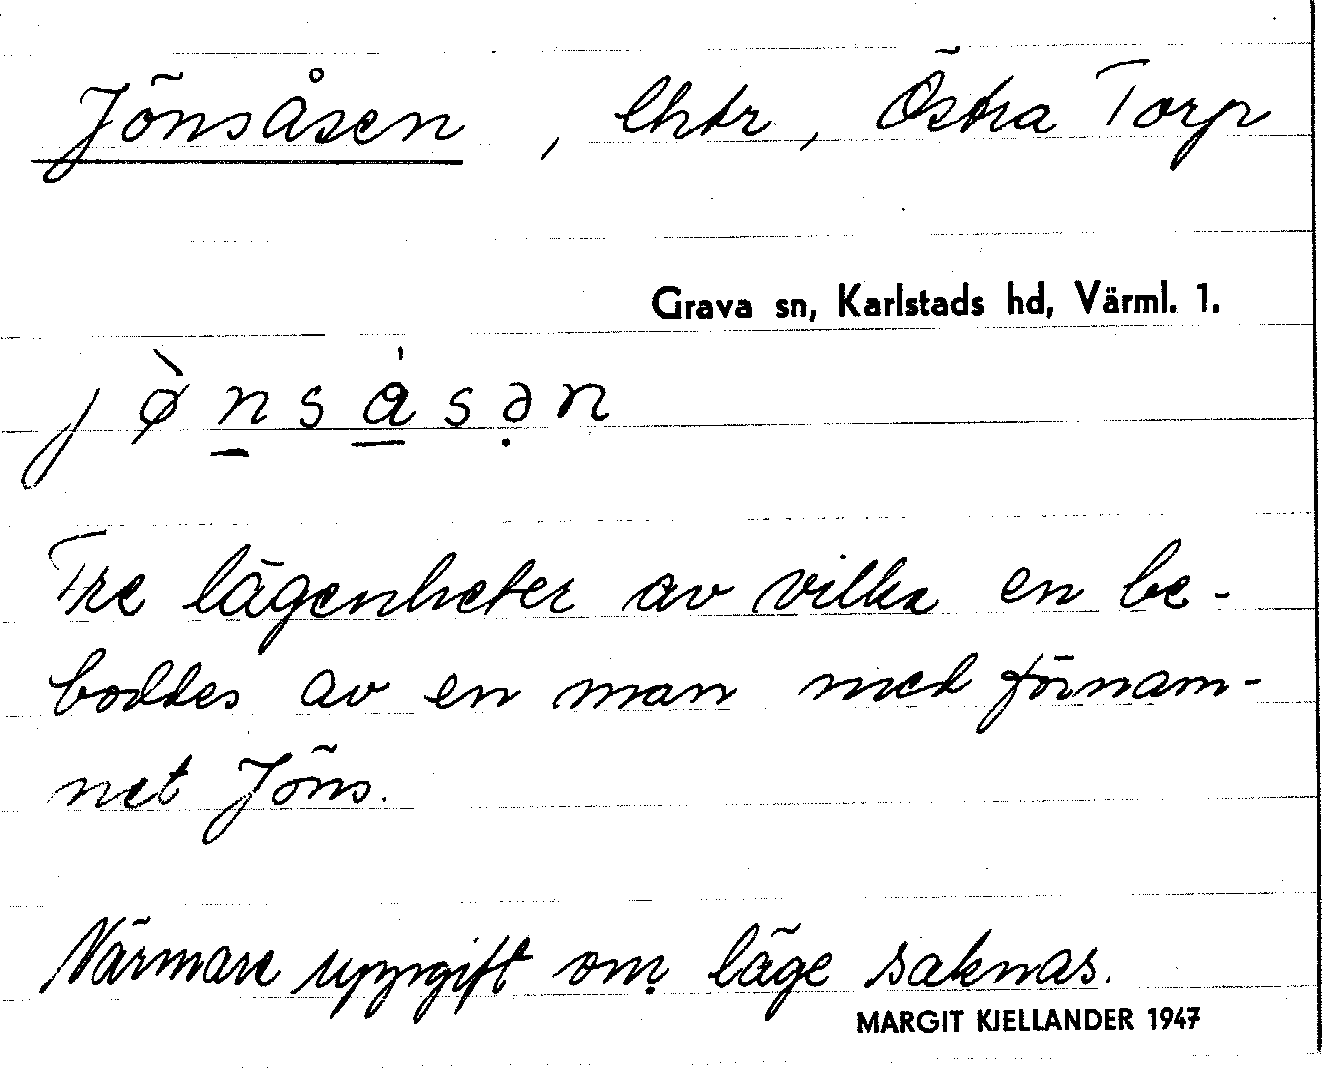 Jönsåsen, lhtr, Östra Torp
Grava sn, Karlstads hd, Värml. 1.
jø̀n̲sǻ̲sə̣n
Tre lägenheter av vilka en be-
boddes av en man med förnam-
net Jöns.
Närmare uppgift om läge saknas.
MARGIT KJELLANDER 1947